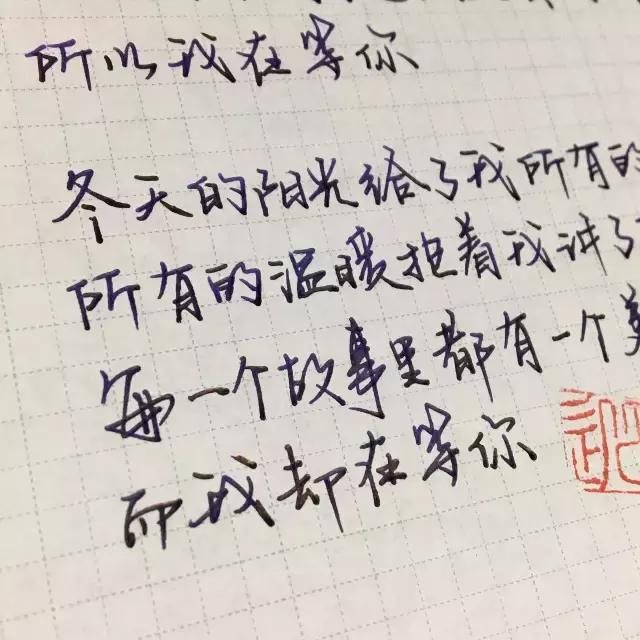 所以我在等你
冬天的阳光给了我所有的
所有的温暖抱着我讲了
每一个故事里都有一个
而我却在等你